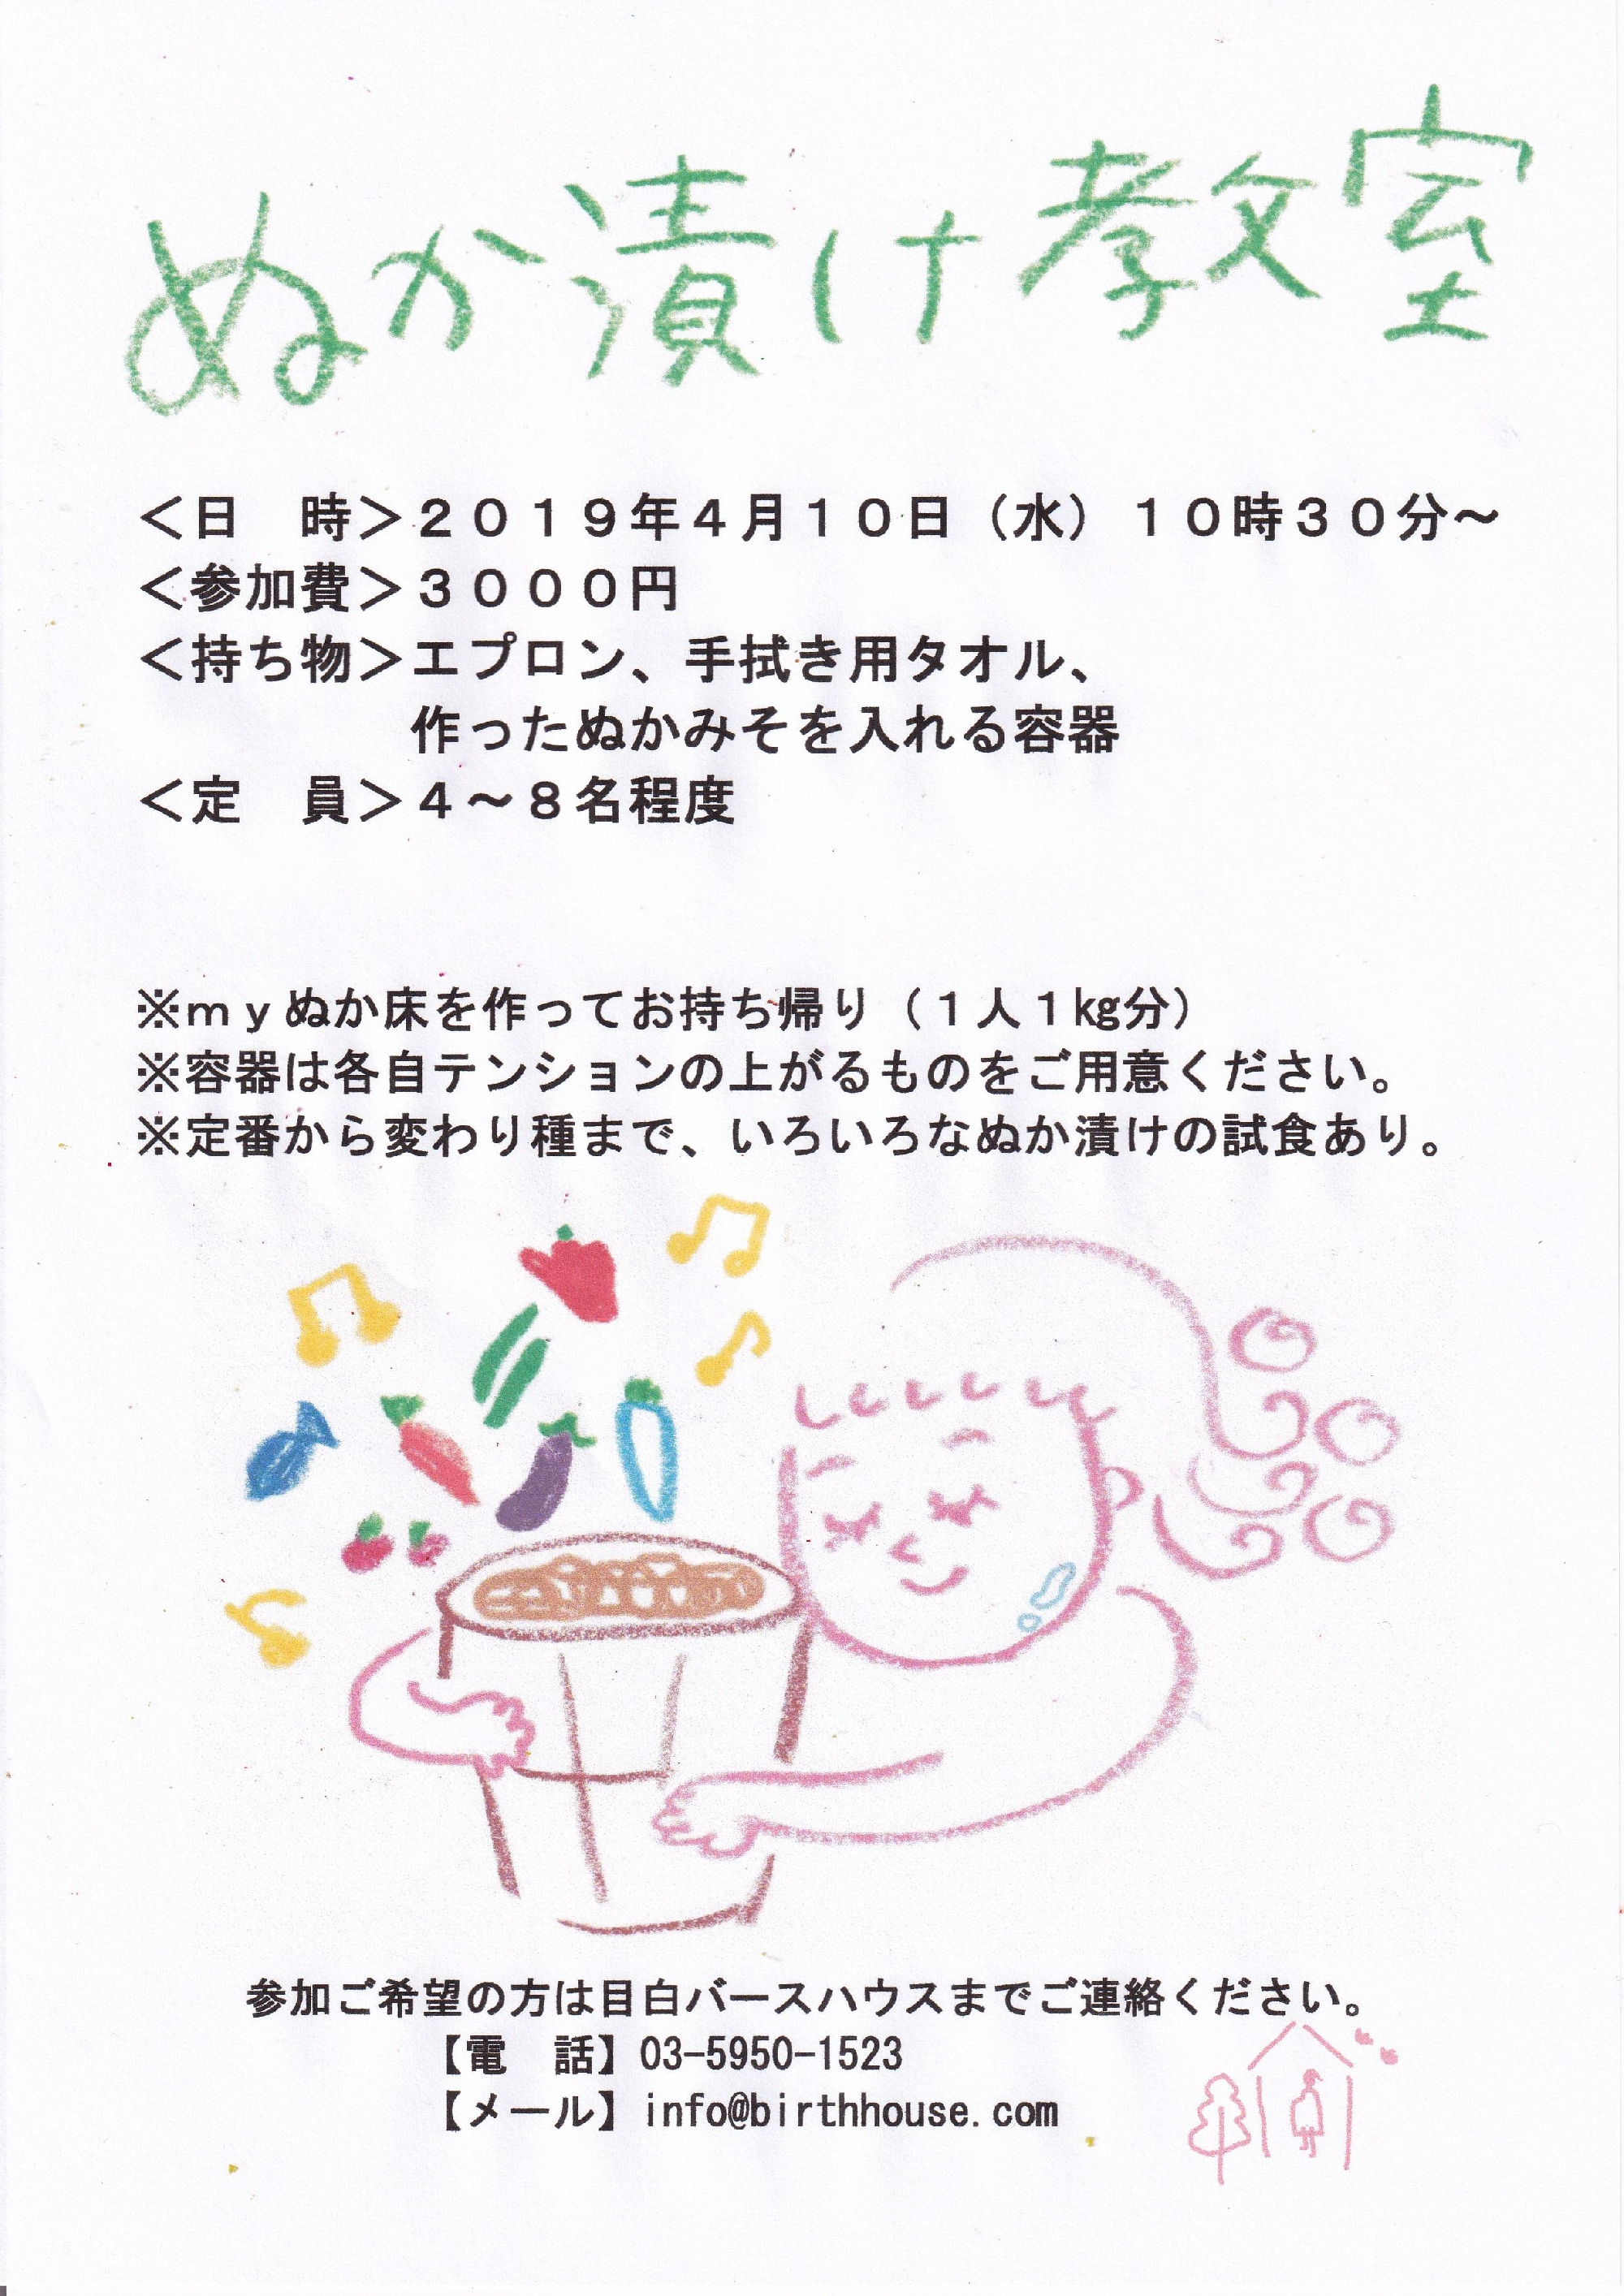 ぬか漬け教室
＜日　時＞２０１９年４月１０日（水）１０時３０分～
＜参加費＞３０００円
＜持ち物＞エプロン、手拭き用タオル、
作ったぬかみそを入れる容器
＜定　員＞４～８名程度
※ｍｙぬか床を作ってお持ち帰り（１人１㎏分）
※容器は各自テンションの上がるものをご用意ください。
※定番から変わり種まで、いろいろなぬか漬けの試食あり。
参加ご希望の方は目白バースハウスまでご連絡ください。
【電　話】03-5950-1523
【メール】info@birthhouse.com